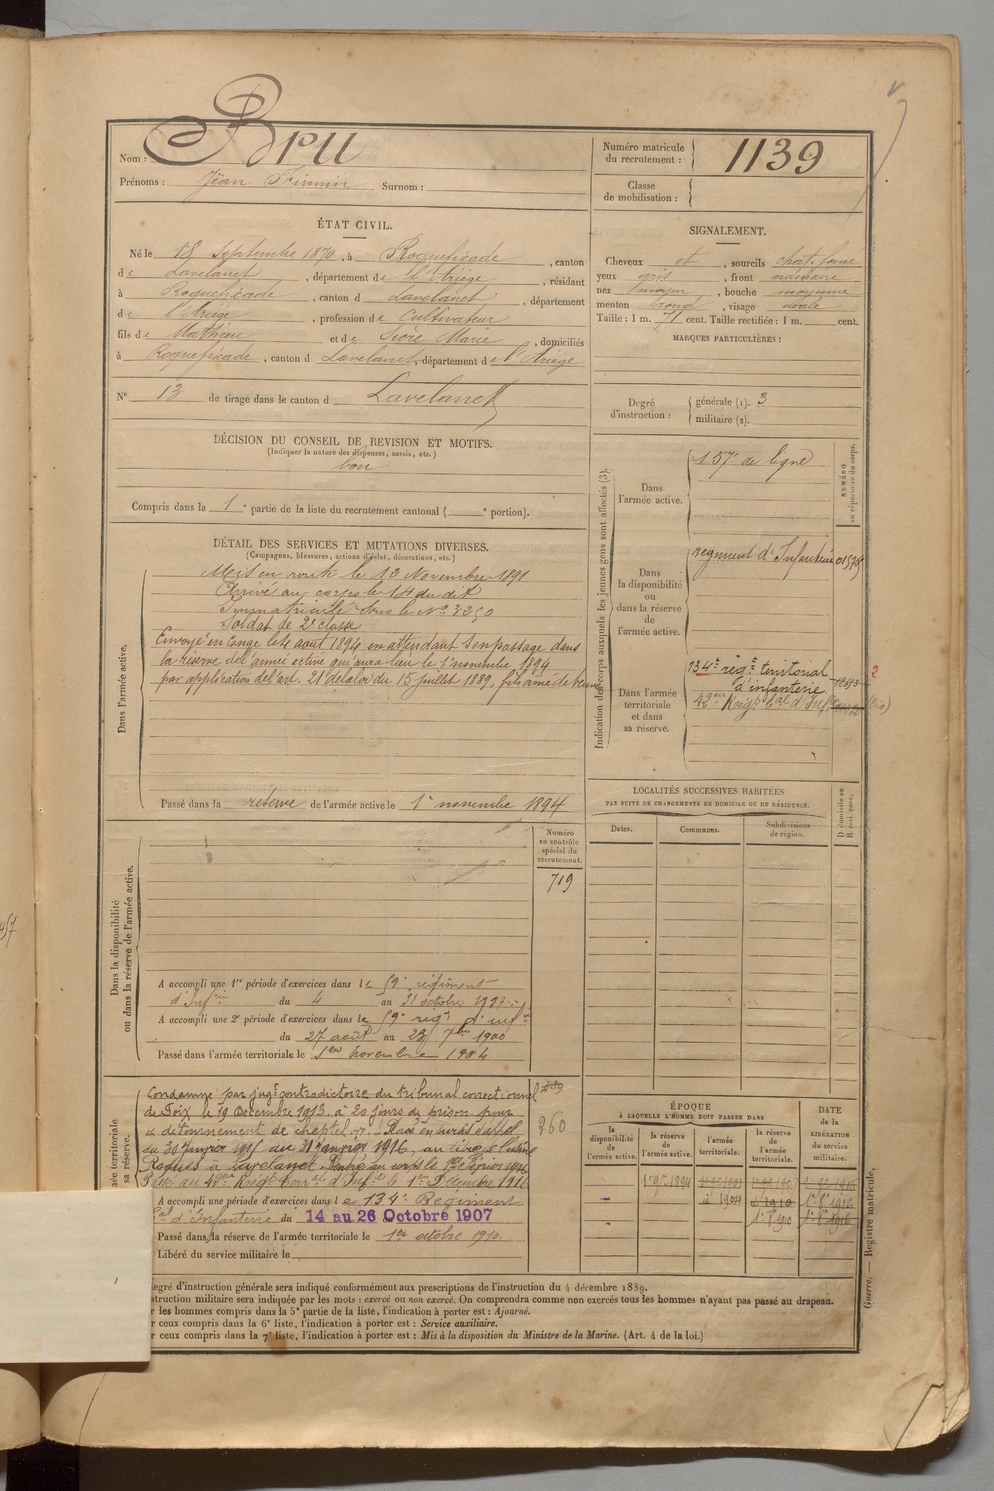 Nom : Bru
Prénoms : Jean Firmin Surnom :
Numéro matricule du recrutement : 1139
Classe de mobilisation :
ÉTAT CIVIL.
Né le 18 Septembre 1870, à Roquefixade, canton
de Lavelanet, département de l'Ariège, résidant
à Roquefixade, canton d Lavelanet, département
de l'Ariège, profession de Cultivateur
fils de Mathieu et de Sicre Marie, domiciliés
à Roquefixade, canton d Lavelanet, département de l'Ariège
N° 13 de tirage dans le canton d Lavelanet
SIGNALEMENT.
Cheveux et, sourcils chat. foncé
yeux gris, front ordinaire
nez moyen, bouche moyenne
menton rond, visage ovale
Taille : 1 m. 71 cent. Taille rectifiée : 1 m. cent.
MARQUES PARTICULIÈRES :
Degré d'instruction : générale (1). 3
militaire (2).
DÉCISION DU CONSEIL DE REVISION ET MOTIFS.
(Indiquer la nature des dispenses, sursis, etc.)
bon
Compris dans la 1e partie de la liste du recrutement cantonal ( e portion).
DÉTAIL DES SERVICES ET MUTATIONS DIVERSES.
(Campagnes, blessures, actions d'éclat, décorations, etc.)
Dans l'armée active.
Mis en route le 12 Novembre 1891
Arrivé au corps le 14 du dit
Immatriculé sous le No 3250
Soldat de 2e classe
Envoyé en Congé le août 1894 en attendant son passage dans
la réserve de l'armée active qui aura lieu le 1er novembre 1894
par application de l'art. 21 de la loi du 15 juillet 1889, fils aîné de veuve
Passé dans la réserve de l'armée active le 1er novembre 1894
Indication des corps auxquels les jeunes gens sont affectés (3).
NUMÉRO au répertoire du corps.
Dans l'armée active.
157e de ligne
Dans la disponibilité ou dans la réserve de l'armée active.
régiment d'Infanterie
Dans l'armée territoriale et dans sa réserve.
134e régt territorial
d'infanterie
42eme Régt tal d'Infie
2
LOCALITÉS SUCCESSIVES HABITÉES
PAR SUITE DE CHANGEMENTS DE DOMICILE OU DE RÉSIDENCE.
Dates.
Communes.
Subdivisions de région.
Dans la disponibilité ou dans la réserve de l'armée active.
Numéro au contrôle spécial du recrutement.
719
A accompli une 1re période d'exercices dans le 59e régiment
d'Infrie du 4 au 31 octobre 1897
A accompli une 2e période d'exercices dans le 59e régt d'infrie
du 27 août au 23 7bre 1900
Passé dans l'armée territoriale le 1er novembre 1904
Condamné par jugt contradictoire du tribunal correctionnel
de Foix le 19 Décembre 1913 à 20 jours de prison pour
détournement de cheptel
du 30 Janvier 1915 au 31 Janvier 1916, au titre de l'usine
à Lavelanet. Rentré au corps le 1er Février 1916
d'Infie le 1er Décembre 1916
260
A accompli une période d'exercices dans le 134e Régiment
tal d'Infanterie du 14 au 26 Octobre 1907
Passé dans la réserve de l'armée territoriale le 1er octobre 1910.
Libéré du service militaire le
ÉPOQUE
À LAQUELLE L'HOMME DOIT PASSER DANS
la disponibilité de l'armée active.
la réserve de l'armée active.
l'armée territoriale.
la réserve de l'armée territoriale.
DATE DE LA LIBÉRATION du service militaire.
Guerre. — Registre matricule.
degré d'instruction générale sera indiqué conformément aux prescriptions de l'instruction du 4 décembre 1889.
struction militaire sera indiquée par les mots : exercé ou non exercé. On comprendra comme non exercés tous les hommes n'ayant pas passé au drapeau.
r les hommes compris dans la 5e partie de la liste, l'indication à porter est : Ajourné.
r ceux compris dans la 6e liste, l'indication à porter est : Service auxiliaire.
r ceux compris dans la 7e liste, l'indication à porter est : Mis à la disposition du Ministre de la Marine. (Art. 4 de la loi.)